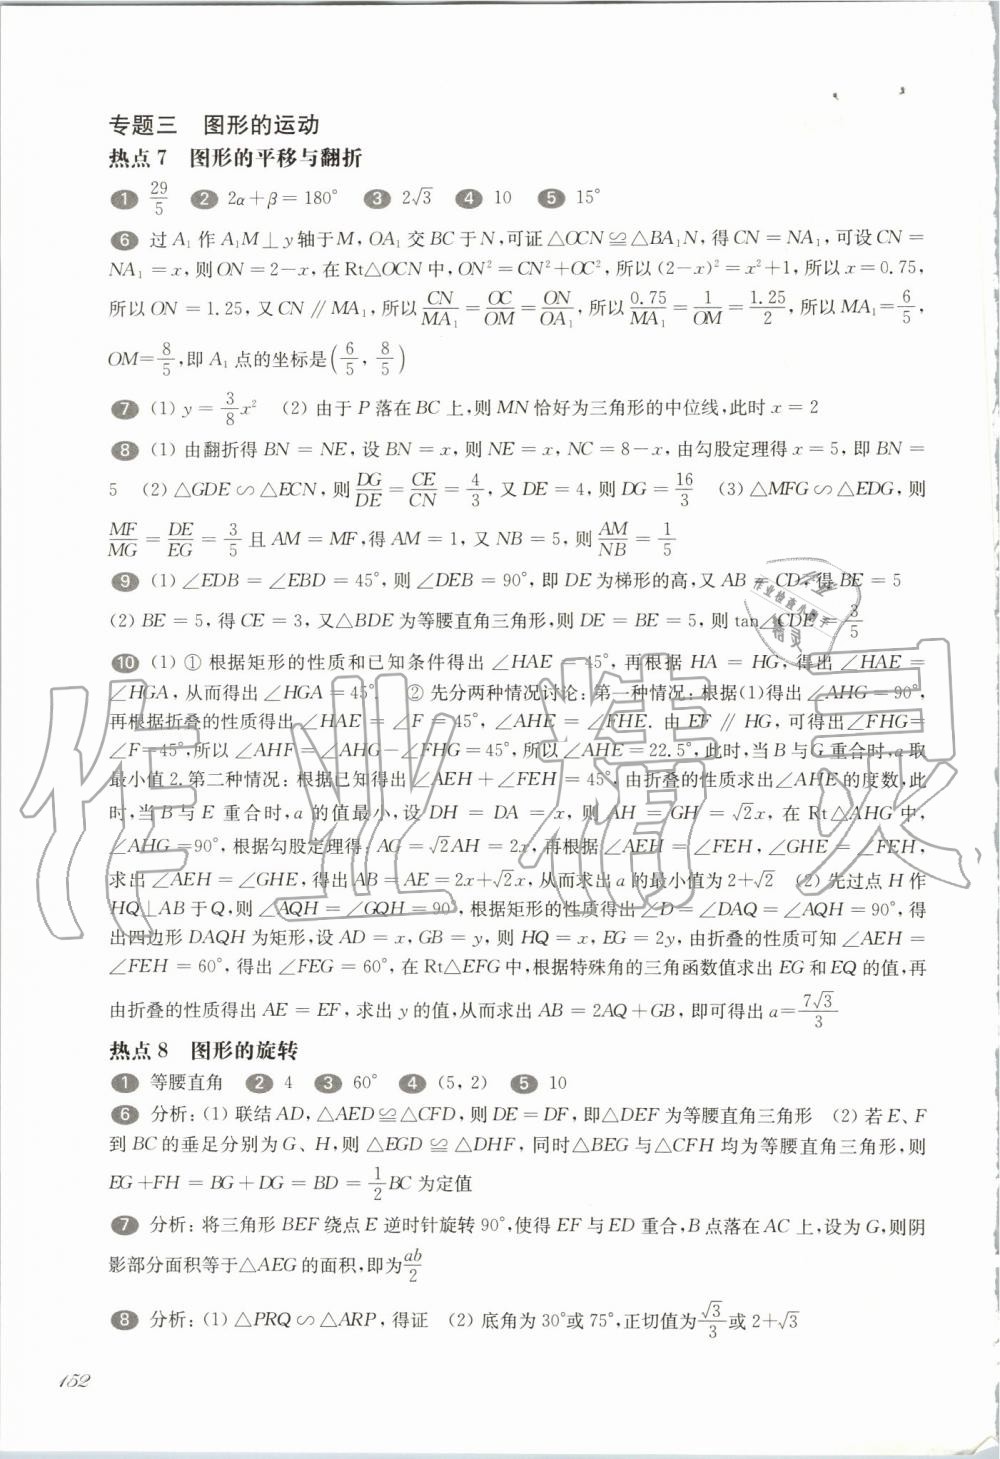 专题三 图形的运动
热点 7 图形的平移与翻折
1 29/5 2 2α+β=180° 3 2√3 4 10 5 15°
6 过 A₁ 作 A₁M⊥y 轴于 M, OA₁ 交 BC 于 N,可证△OCN≌△BA₁N,得 CN=NA₁,可设 CN=
NA₁=x,则 ON=2-x,在 Rt△OCN 中,ON²=CN²+OC²,所以(2-x)²=x²+1,所以 x=0.75,
所以 ON=1.25,又 CN∥MA₁,所以 CN/MA₁=OC/OM=ON/OA₁,所以 0.75/MA₁=1/OM=1.25/2,所以 MA₁=6/5,
OM=8/5,即 A₁ 点的坐标是(6/5, 8/5)
7 (1) y=3/8x² (2) 由于 P 落在 BC 上,则 MN 恰好为三角形的中位线,此时 x=2
8 (1) 由翻折得 BN=NE,设 BN=x,则 NE=x,NC=8-x,由勾股定理得 x=5,即 BN=
5 (2) △GDE∽△ECN,则 DG/DE=CE/CN=4/3,又 DE=4,则 DG=16/3 (3) △MFG∽△EDG,则
MF/MG=DE/EG=3/5 且 AM=MF,得 AM=1,又 NB=5,则 AM/NB=1/5
9 (1) ∠EDB=∠EBD=45°,则 ∠DEB=90°,即 DE 为梯形的高,又 AB=CD,得 BE=5
(2) BE=5,得 CE=3,又△BDE 为等腰直角三角形,则 DE=BE=5,则 tan∠CDE=3/5
10 (1) ① 根据矩形的性质和已知条件得出 ∠HAE=45°,再根据 HA=HG,得出 ∠HAE=
∠HGA,从而得出 ∠HGA=45°. ② 先分两种情况讨论:第一种情况:根据(1)得出 ∠AHG=90°,
再根据折叠的性质得出 ∠HAE=∠F=45°,∠AHE=∠FHE. 由 EF∥HG,可得出∠FHG=
∠F=45°,所以 ∠AHF=∠AHG-∠FHG=45°,所以∠AHE=22.5°,此时,当 B 与 G 重合时,a 取
最小值 2.第二种情况:根据已知得出 ∠AEH+∠FEH=45°,由折叠的性质求出∠AHE 的度数,此
时,当 B 与 E 重合时,a 的值最小,设 DH=DA=x,则 AH=GH=√2x,在 Rt△AHG 中,
∠AHG=90°,根据勾股定理得:AG=√2AH=2x,再根据 ∠AEH=∠FEH,∠GHE=∠FEH,
求出 ∠AEH=∠GHE,得出 AB=AE=2x+√2x,从而求出 a 的最小值为 2+√2 (2) 先过点 H 作
HQ⊥AB 于 Q,则 ∠AQH=∠GQH=90°,根据矩形的性质得出∠D=∠DAQ=∠AQH=90°,得
出四边形 DAQH 为矩形,设 AD=x,GB=y,则 HQ=x,EG=2y,由折叠的性质可知 ∠AEH=
∠FEH=60°,得出 ∠FEG=60°,在 Rt△EFG 中,根据特殊角的三角函数值求出 EG 和 EQ 的值,再
由折叠的性质得出 AE=EF,求出 y 的值,从而求出 AB=2AQ+GB,即可得出 a=7√3/3
热点 8 图形的旋转
1 等腰直角 2 4 3 60° 4 (5, 2) 5 10
6 分析:(1) 联结 AD,△AED≌△CFD,则 DE=DF,即△DEF 为等腰直角三角形 (2) 若 E、F
到 BC 的垂足分别为 G、H,则 △EGD≌△DHF,同时△BEG 与△CFH 均为等腰直角三角形,则
EG+FH=BG+DG=BD=1/2BC 为定值
7 分析:将三角形 BEF 绕点 E 逆时针旋转 90°,使得 EF 与 ED 重合,B 点落在 AC 上,设为 G,则阴
影部分面积等于△AEG 的面积,即为 ab/2
8 分析:(1) △PRQ∽△ARP,得证 (2) 底角为 30°或 75°,正切值为 √3/3 或 2+√3
152
作业精灵
作业检查小助手
精灵